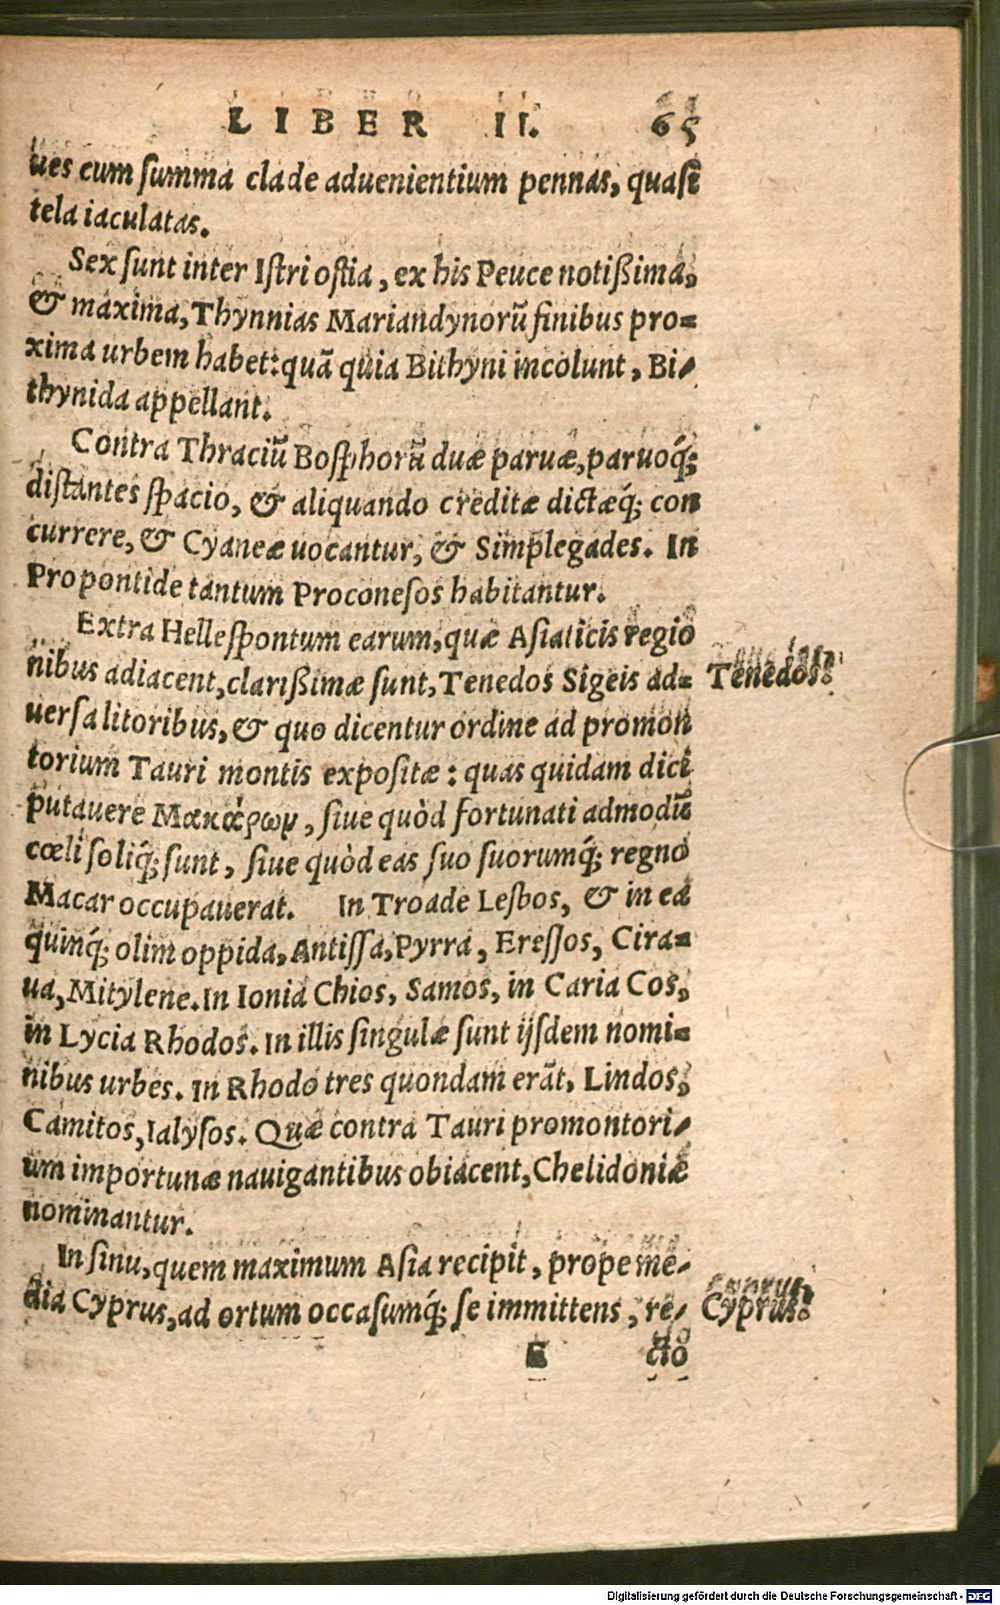 LIBER II. 65
ues cum ſumma clade aduenientium pennas, quaſi
tela iaculatas.
Sex ſunt inter Iſtri oſtia, ex his Peuce notißima,
& maxima, Thynnias Mariandynorũ finibus pro-
xima urbem habet: quã quia Bithyni incolunt, Bi-
thynida appellant.
Contra Thraciũ Boſphorũ duæ paruæ, paruoq́;
diſtantes ſpacio, & aliquando creditæ dictæq́; con
currere, & Cyaneæ uocantur, & Simplegades. In
Propontide tantum Proconeſos habitantur.
Extra Helleſpontum earum, quæ Aſiaticis regio
nibus adiacent, clarißimæ ſunt, Tenedos Sigeis ad- Tenedos.
uerſa litoribus, & quo dicentur ordine ad promon
torium Tauri montis expoſitæ: quas quidam dici
putauere Μακάρων, ſiue quòd fortunati admodũ
cœli ſoliq́; ſunt, ſiue quòd eas ſuo ſuorumq́; regno
Macar occupauerat. In Troade Lesbos, & in ea
quinq́; olim oppida, Antiſſa, Pyrra, Ereſſos, Cira-
ua, Mitylene. In Ionia Chios, Samos, in Caria Cos,
in Lycia Rhodos. In illis ſingulæ ſunt ijſdem nomi-
nibus urbes. In Rhodo tres quondam erãt, Lindos,
Camitos, Ialyſos. Quæ contra Tauri promontori-
um importunæ nauigantibus obiacent, Chelidoniæ
nominantur.
In ſinu, quem maximum Aſia recipit, prope me-
dia Cyprus, ad ortum occaſumq́; ſe immittens, re- Cyprus.
E cto
Digitalisierung gefördert durch die Deutsche Forschungsgemeinschaft - DFG